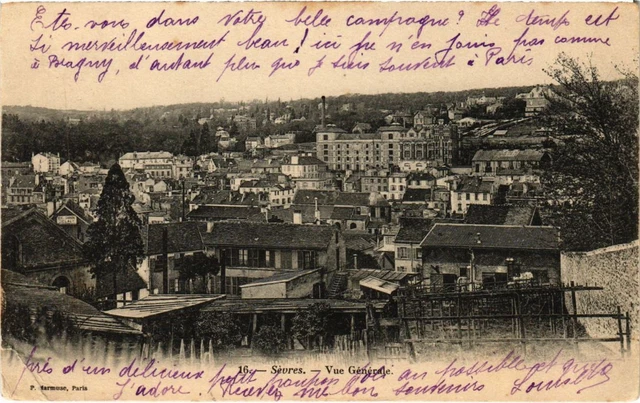 Etes-vous dans votre belle campagne? Le temps est
si merveilleusement beau! ici je n'en jouis pas comme
à Bagny, d'autant plus que je suis souvent à Paris
16. - Sèvres. - Vue Générale.
près d'un délicieux petit poupon au possible et que
P. Marmuse, Paris
J'adore. Recevez mes bons souvenirs